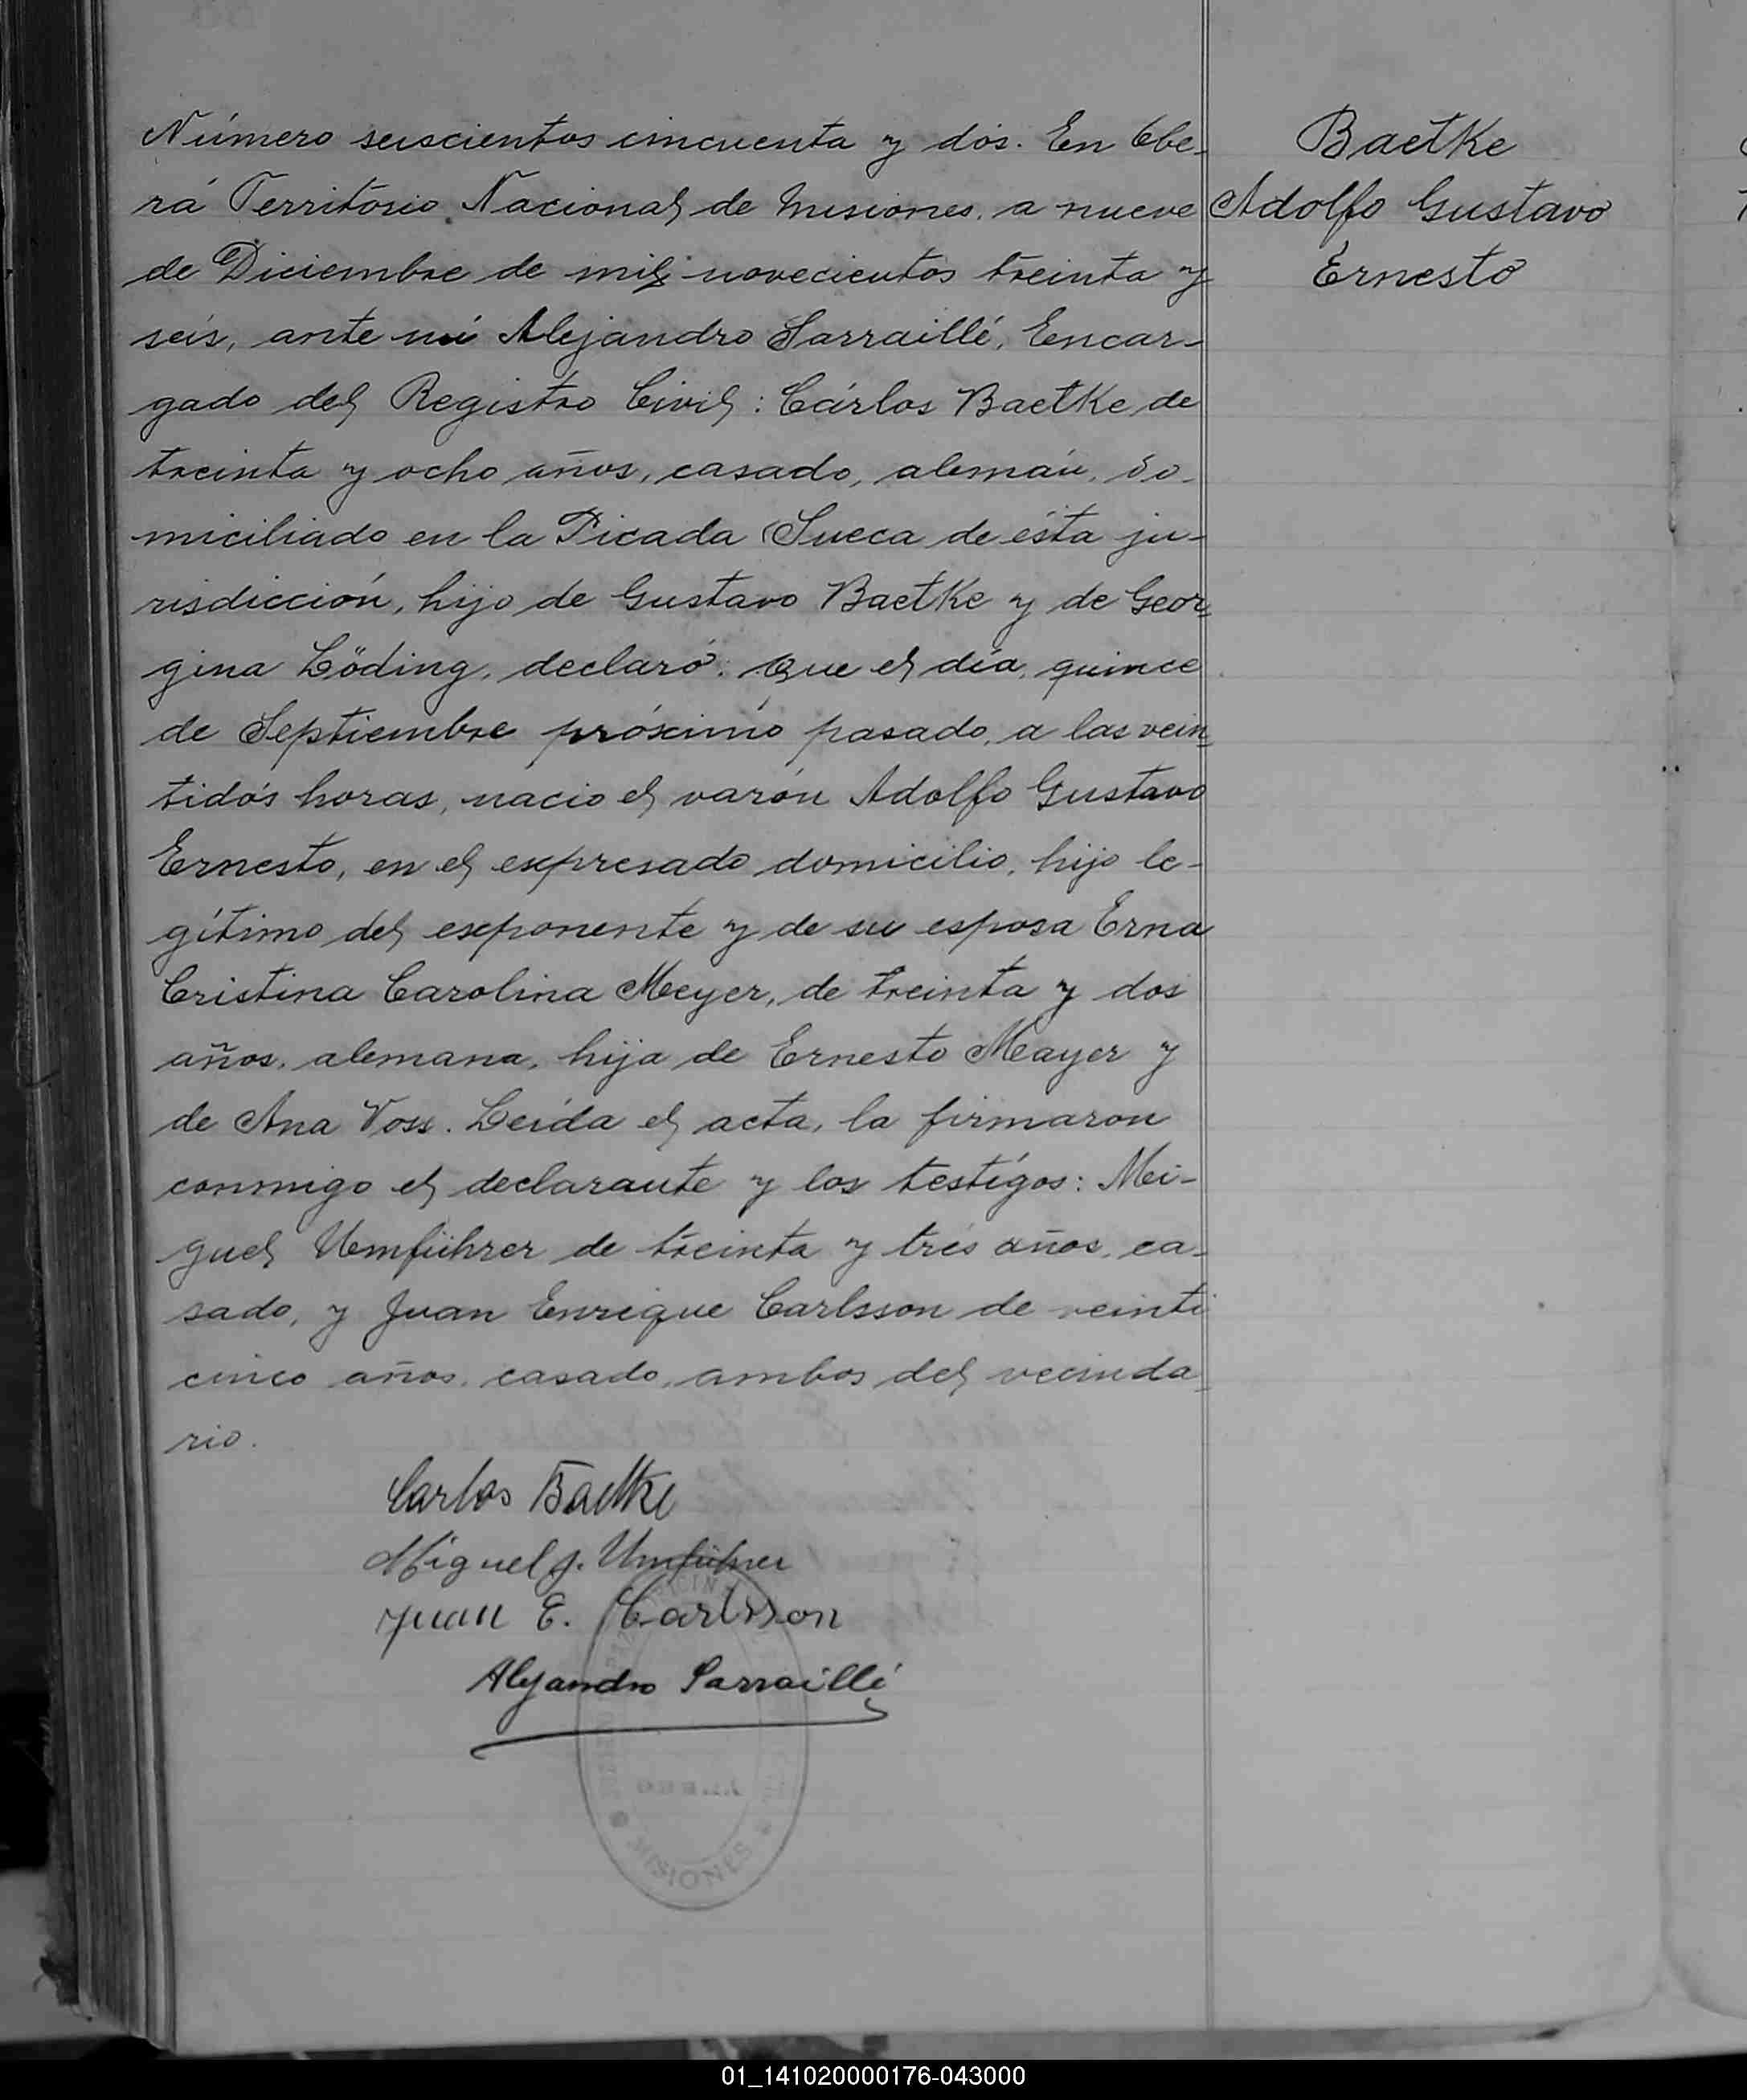 Número seiscientos cincuenta y dos. En Obe-
rá Territorio Nacional de Misiones, a nueve
de Diciembre de mil novecientos treinta y
seis, ante mí Alejandro Sarraillé, Encar-
gado del Registro Civil: Cárlos Baetke de
treinta y ocho años, casado, alemán, do-
miciliado en la Picada Sueca de ésta ju-
risdicción, hijo de Gustavo Baetke y de Geor-
gina Löding, declaró: Que el día quince
de Septiembre próximo pasado, a las vein-
tidós horas, nacio el varón Adolfo Gustavo
Ernesto, en el expresado domicilio, hijo le-
gítimo del exponente y de su esposa Erna
Cristina Carolina Meyer, de treinta y dos
años, alemana, hija de Ernesto Meayer y
de Ana Voss. Leída el acta, la firmaron
conmigo el declarante y los testigos: Mei-
guel Uemführer de treinta y tres años, ca-
sado, y Juan Enrique Carlsson de veinti
cinco años, casado, ambos del vecinda-
rio.
Baetke
Adolfo Gustavo
Ernesto
Carlos Baetke
Miguel J. Umführer
Juan E. Carlsson
Alejandro Sarraillé
MISIONES
01_141020000176-043000